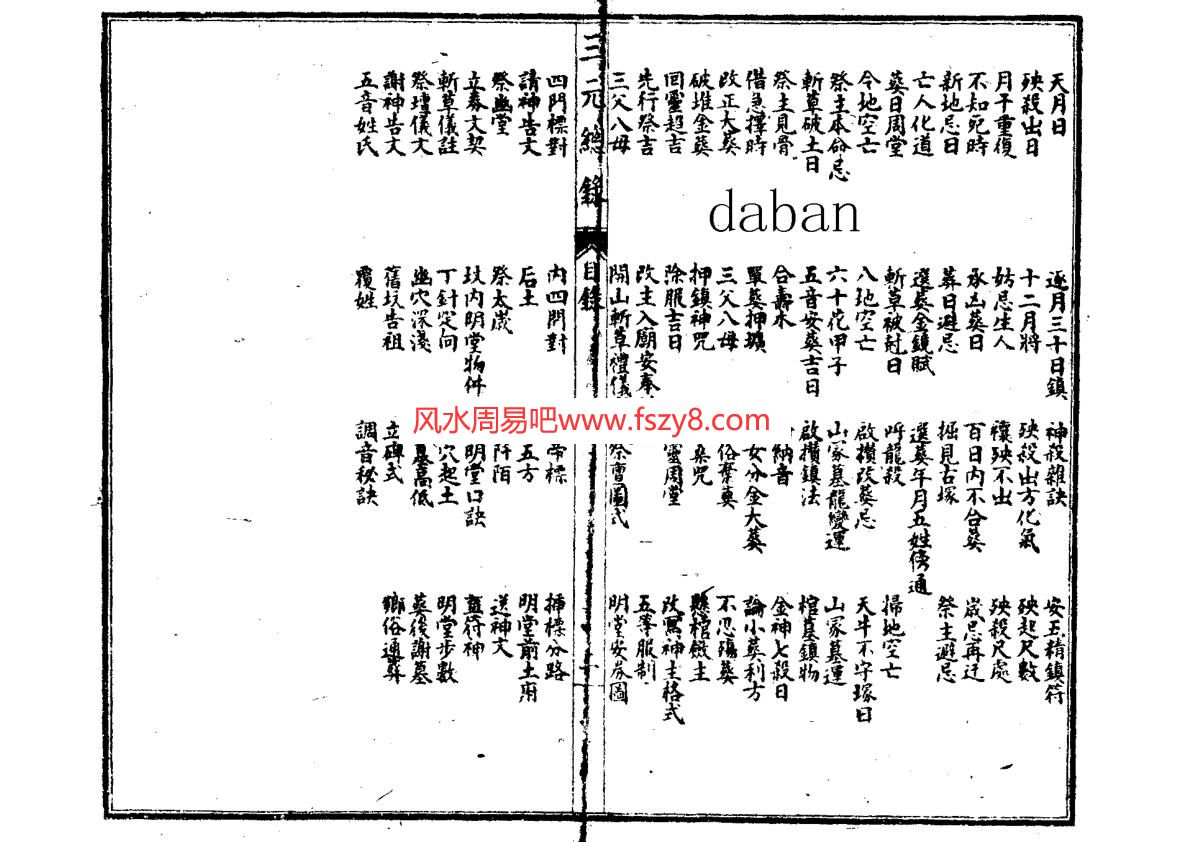 天月日 逐月三十日鎮 神殺雜訣 安玉精鎮符
殃殺出日 十二月將 殃殺出方化氣 殃起尺數
月干重復 妨忌生人 禳殃不出 殃殺尺處
不知死時 承凶葬日 百日內不合葬 歲忌再迁
新地忌日 葬日避忌 掘見古塚 祭主避忌
亡人化道 選葬金鏡賦 選葬年月五姓傍通
葬日周堂 斬草破尅日 呼龍殺 掃地空亡
今地空亡 八地空亡 啟攢改葬忌 天牛不守塚日
祭主本命忌 六十花甲子 山冢墓龍變運 山冢墓運
斬草破土日 五音安葬吉日 啟攢鎮法 棺墓鎮物
祭主見骨 合壽木 納音 金神七殺日
借急擇時 單葬押壙 女分金大葬 論小葬利方
改正大葬 三父八母 俗棄葬 不忍殤葬
破堆金葬 押鎮神咒 桑咒 懸棺主
回靈超吉 除服吉日 靈周堂 改寫神主格式
先行祭吉 改主入廟安奉 五等服制
三父八母 開山斬草禮儀 祭壇圖式 明堂安券圖
三元總錄 目錄
四門標對 內四門對 帝標 插標分路
請神告文 后土 五方 明堂前土府
祭幽堂 祭太歲 阡陌 送神文
立券文契 坟内明堂物件 明堂口訣 蓋符神
斬草儀註 丁針定向 穴起土 明堂步數
祭壇儀文 幽穴深淺 墓高低 葬後謝墓
謝神告文 舊坟告祖 立碑式 鄉俗通葬
五音姓氏 覆姓 調音秘訣
daban
风水周易吧www.fszy8.com